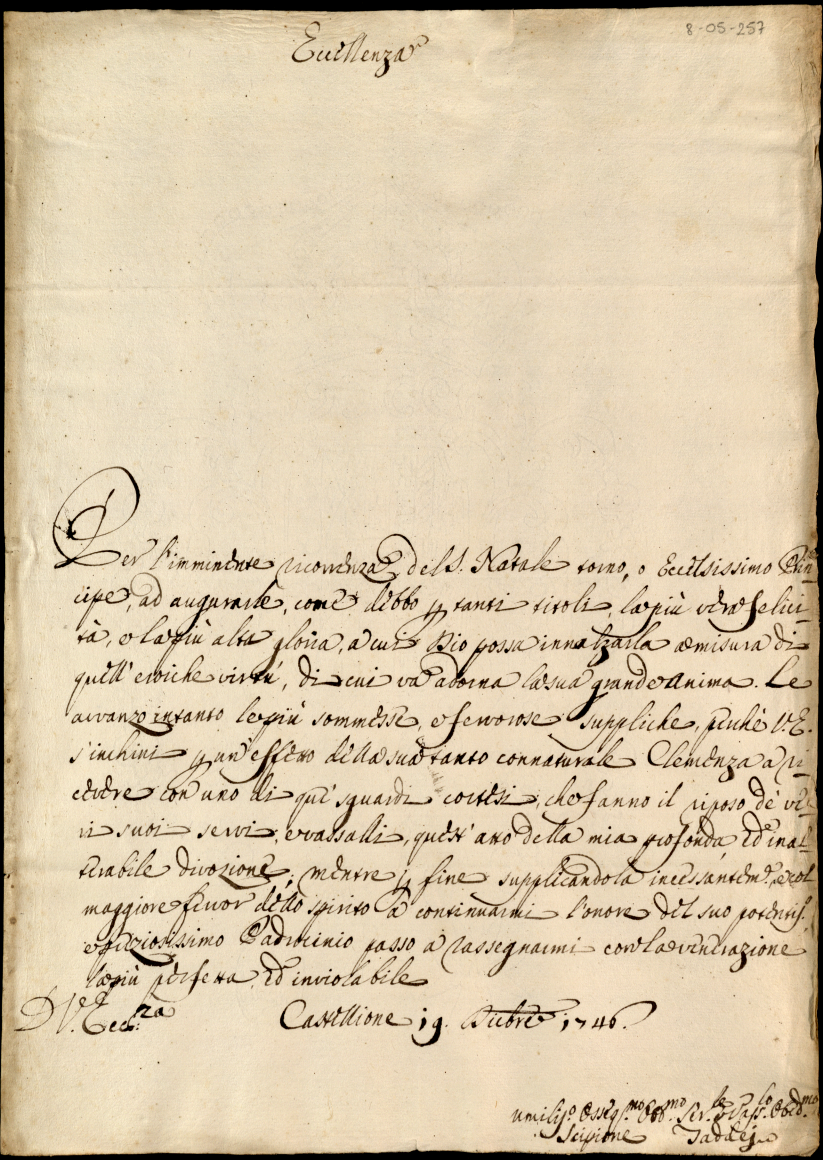 8-05-257
Eccellenza
Per l'imminente ricorrenza del S. Natale torno, o Eccelsissimo Prin-
cipe, ad augurarle, come debbo p tanti titoli, la più vera felici-
tà, e la più alta gloria, a cui Dio possa innalzarla a misura di
quell'eroiche virtù, di cui va adorna la sua grande Anima. Le
avvanzo intanto le più sommesse, e fervorose suppliche, perchè V.E.
s'inchini p un'effetto della sua tanto connaturale Clemenza a ri-
cevere con uno di que' sguardi cortesi, che fanno il riposo de' ve-
ri suoi servi, e vassalli, quest'atto della mia profonda ed inal-
terabile divozione; mentre p fine supplicandola incessantem.e, e col
maggiore fervor dello spirito à continuarmi l'onore del suo potentiss.
e prziosissimo Padrocinio passo à rassegnarmi con la venerazione
la più perfetta, ed inviolabile
D V. Ecc.za
Castellione 19. Dicbre 1746.
Umiliss.o Osseq.mo Obb.mo Ser.le e Vass.lo Obed.mo
Scipione Taddej